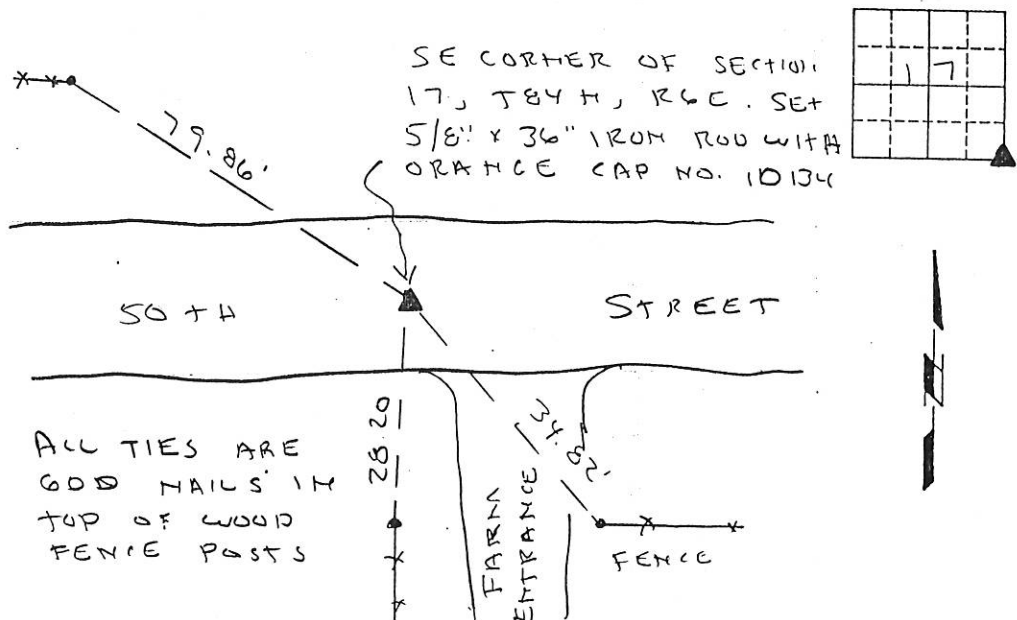 SE CORNER OF SECTION
17, T84N, R6E. SET
5/8" x 36" IRON ROD WITH
ORANGE CAP NO. 10134
17
79.86'
50TH STREET
N
28.20
34.82'
ALL TIES ARE
60D NAILS IN
TOP OF WOOD
FENCE POSTS
FARM
ENTRANCE
FENCE